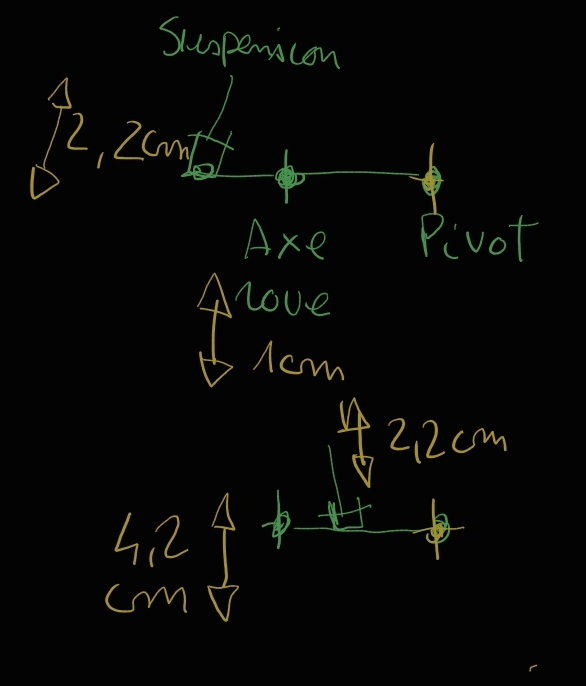 Suspension
2,2cm
Axe
roue
Pivot
1cm
2,2cm
4,2
cm